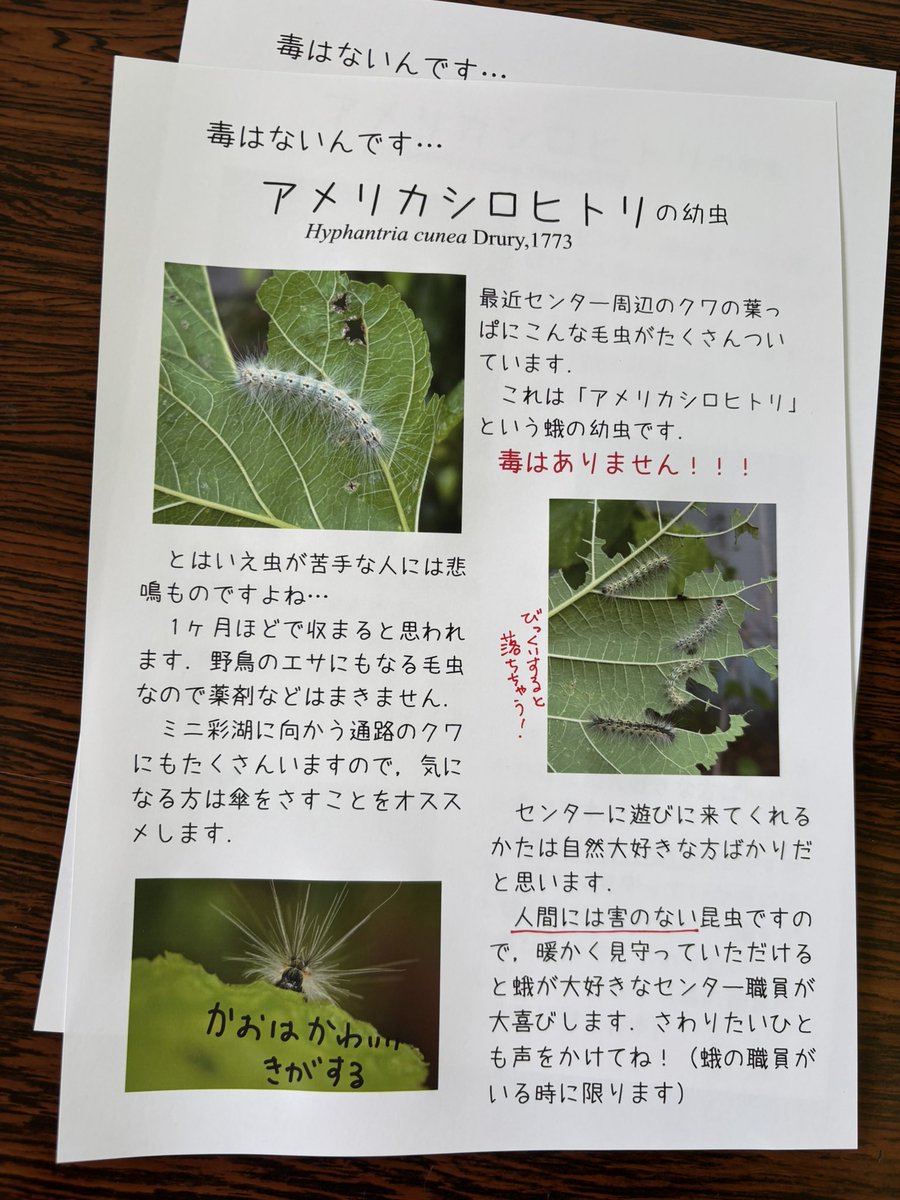 毒はないんです…
毒はないんです…
アメリカシロヒトリの幼虫
Hyphantria cunea Drury,1773
最近センター周辺のクワの葉っ
ぱにこんな毛虫がたくさんつい
ています.
これは「アメリカシロヒトリ」
という蛾の幼虫です.
毒はありません！！！
とはいえ虫が苦手な人には悲
鳴ものですよね…
1ヶ月ほどで収まると思われ
ます. 野鳥のエサにもなる毛虫
なので薬剤などはまきません.
ミニ彩湖に向かう通路のクワ
にもたくさんいますので, 気に
なる方は傘をさすことをオスス
メします.
びっくりすると
落ちちゃう！
かおはかわいい
きがする
センターに遊びに来てくれる
かたは自然大好きな方ばかりだ
と思います.
人間には害のない昆虫ですの
で, 暖かく見守っていただける
と蛾が大好きなセンター職員が
大喜びします. さわりたいひと
も声をかけてね！（蛾の職員が
いる時に限ります）